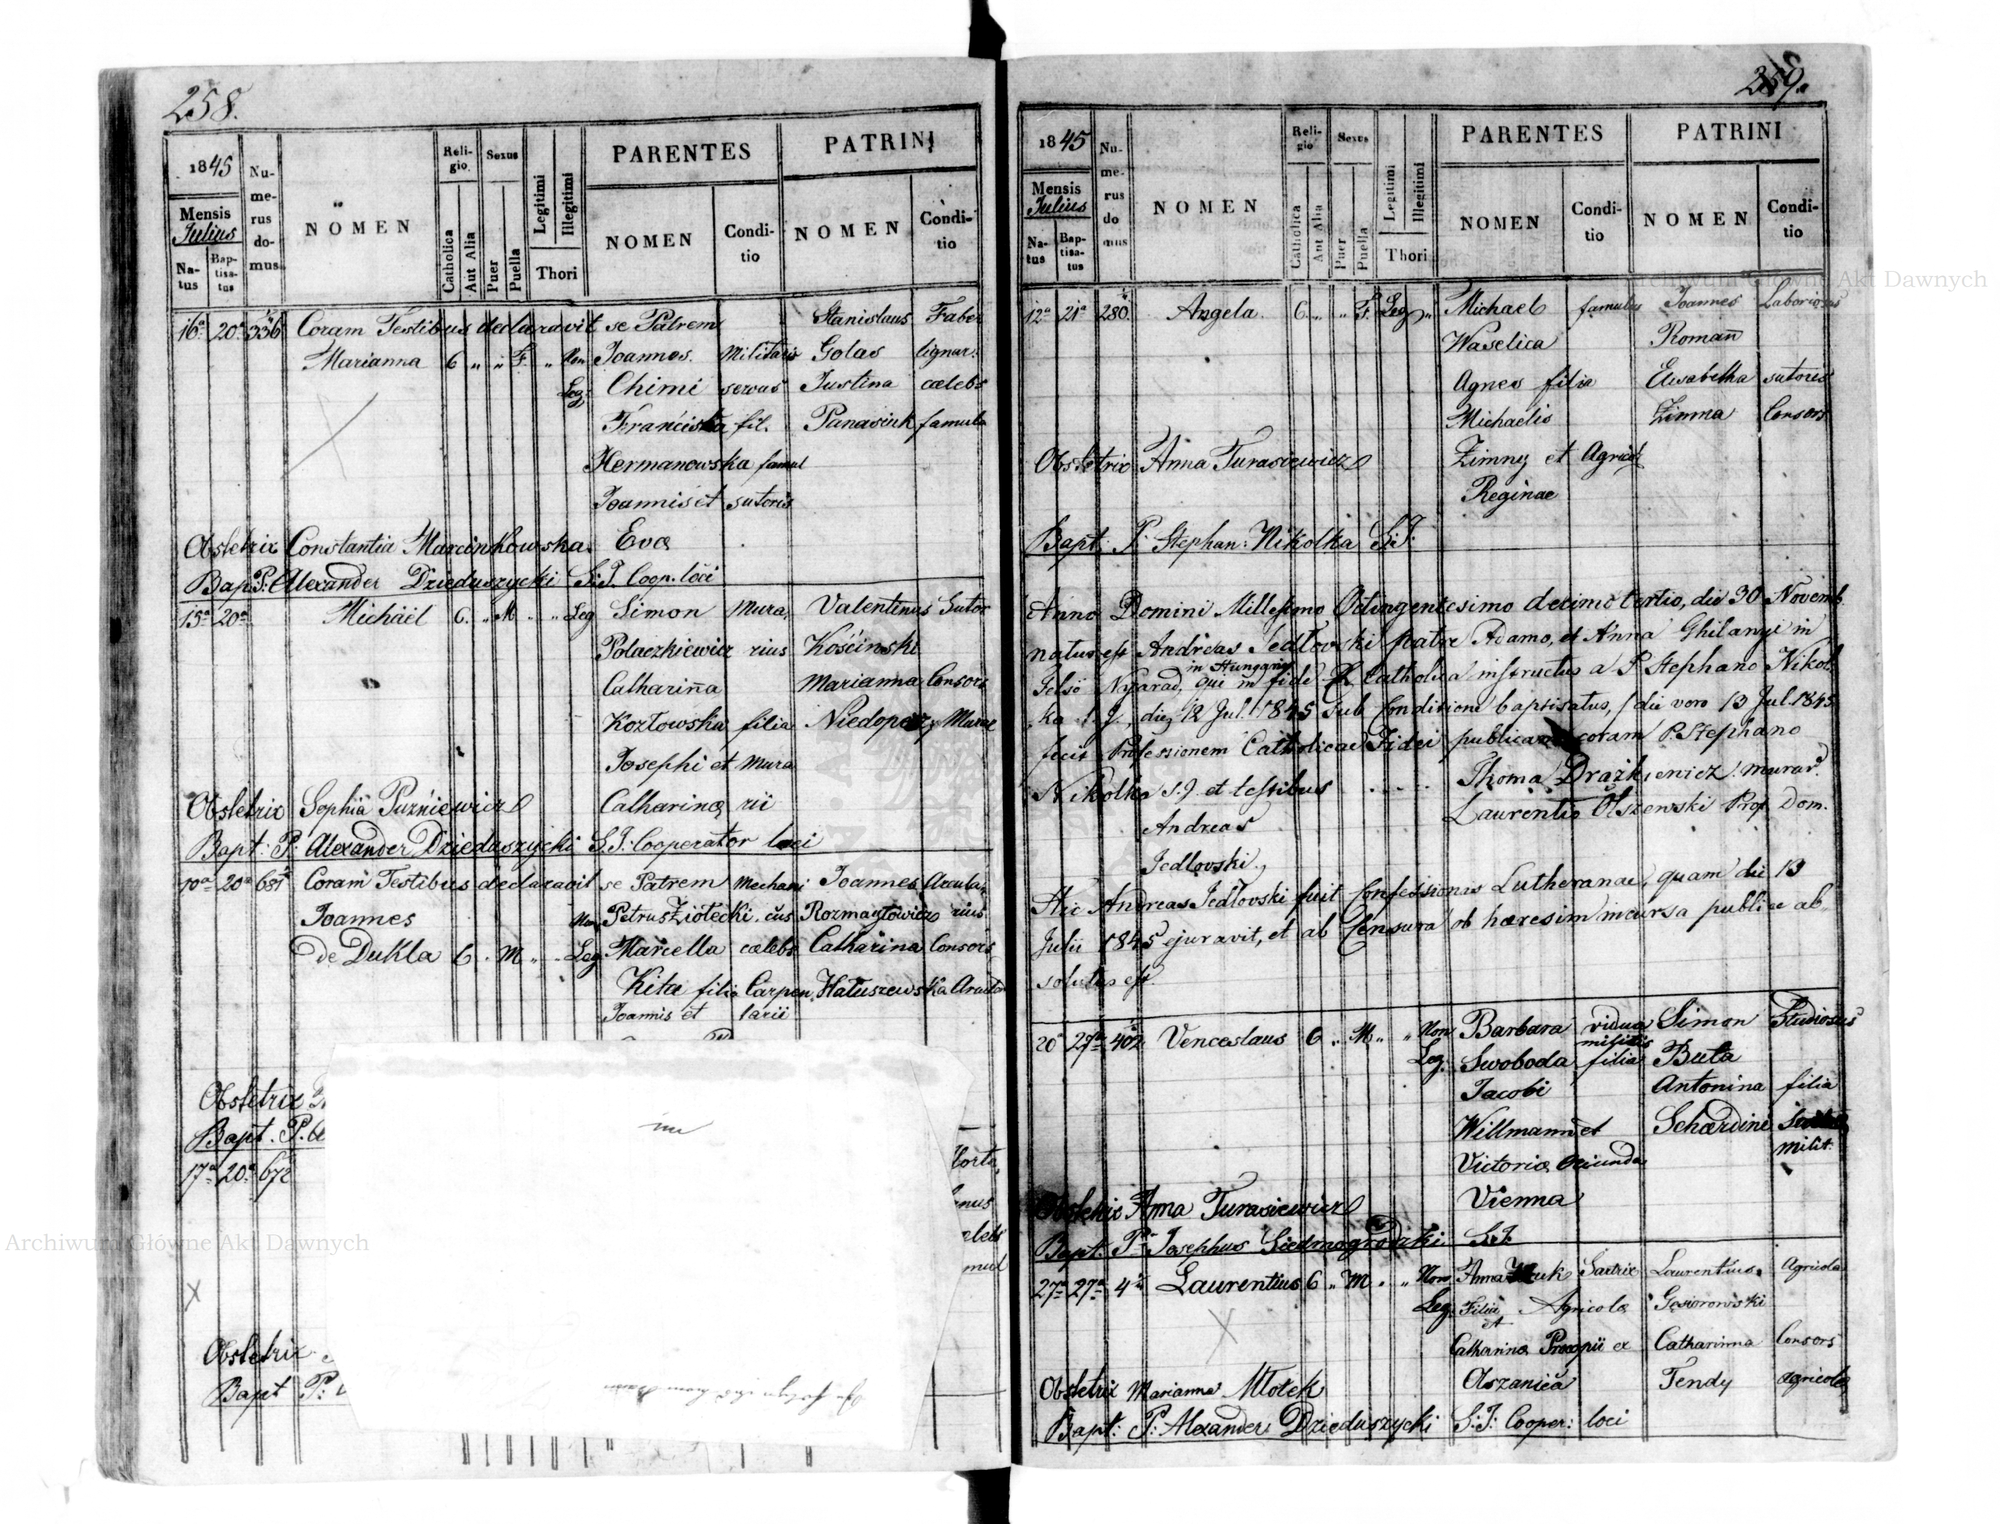 258.
1845
Mensis
Julius
Natus
Baptisatus
Numerus domus
NOMEN
Religio
Catholica
Aut Alia
Sexus
Puer
Puella
Legitimi
Illegitimi
Thori
PARENTES
NOMEN
Conditio
PATRINI
NOMEN
Conditio
16a 20a 336 Coram Testibus declaravit se Patrem Stanislaus Faber
Marianna C „ „ F. „ Non Joannes Militaris Golas lignar.
Leg. Chimi servus Justina cælebs
Franciska fil. Panasiuk famula
Hermanowska famul
Joannis et sutoris
Obstetrix Constantia Marcinkowska Evæ
Bap: P: Alexander Dzieduszycki S.J. Coop. loci
15a 20a Michäel C. „ M „ „ Leg Simon Mura, Valentinus Sutor
Polaczkiewicz rius Kościnski
Catharina Marianna Consors
Kozłowska filia Niedoperz Murar
Josephi et Mura
Obstetrix Sophia Puzniewicz Catharinæ rii
Bapt: P: Alexander Dzieduszycki S.J. Cooperator loci
10a 20a 681 Coram Testibus declaravit se Patrem Mechani Joannes Arcula,
Joannes Non Petrus Ziołecki cus Rozmaytowicz rius
de Dukla C „ M „ Leg Marcella cælebs Catharina Consors
Kita filia Carpen, Hatuszewska
Joannis et tarii
Obstetrix
Bapt. P.
17a 20a 672
Obstetrix
Bapt P:
259.
1845
Mensis
Julius
Natus
Baptisatus
Numerus domus
NOMEN
Religio
Catholica
Aut Alia
Sexus
Puer
Puella
Legitimi
Illegitimi
Thori
PARENTES
NOMEN
Conditio
PATRINI
NOMEN
Conditio
12a 21a 280 Angela. C. „ „ F. Leg „ Michael famulus Joannes Laboriosus
Waselica Roman
Agnes filia Elisabetha sutoris
Michaelis Zimma Consors
Obstetrix Anna Turasiewicz Zimny et Agricol
Reginae
Bapt: P: Stephan: Nikolka S.J.
Anno Domini Millesimo Octingentesimo decimo tertio, die 30 Novemb.
natus est Andreas Jedlovski patre Adamo, et Anna Ghilanyi in
Felsö Nyarad, in Hungaria qui in fide Catholica instructus a P. Stephano Nikol-
ka S.J., die 12 Jul. 1845 sub Conditione baptisatus, die vero 13 Jul. 1845
fecit Professionem Catholicae Fidei publicam coram P. Stephano
Nikolka S.J. et testibus . . . . Thoma Drażkiewicz murar.
Laurentio Olszewski Prop. Dom.
Andreas
Jedlovski.
Hic Andreas Jedlovski fuit Confessionis Lutheranae, quam die 13
Julii 1845 ejuravit, et ab Censura ob haeresim incursa publice ab-
solutus est.
20a 27a 402 Venceslaus C „ M „ „ Non Barbara vidua Simon Studiosus
militis
Leg. Swoboda filia Buta
Jacobi Antonina filia
Willmann et Schærdini
Victoriæ oriunda milit.
Obstetrix Anna Turasiewicz Vienna
Bapt: P. Josephus Siedmogrodzki S.J.
27a 27a 4a Laurentius C „ M „ „ Non Anna Sartrix Laurentius Agricola
Leg. Filia Agricolæ Gąsiorowski
et
Catharinæ Procopii ex Catharinna Consors
Obstetrix Marianna Młotek Olszanica Tendy agricolæ
Bapt: P: Alexander Dzieduszycki S:J: Cooper: loci
Archiwum Główne Akt Dawnych
Archiwum Główne Akt Dawnych